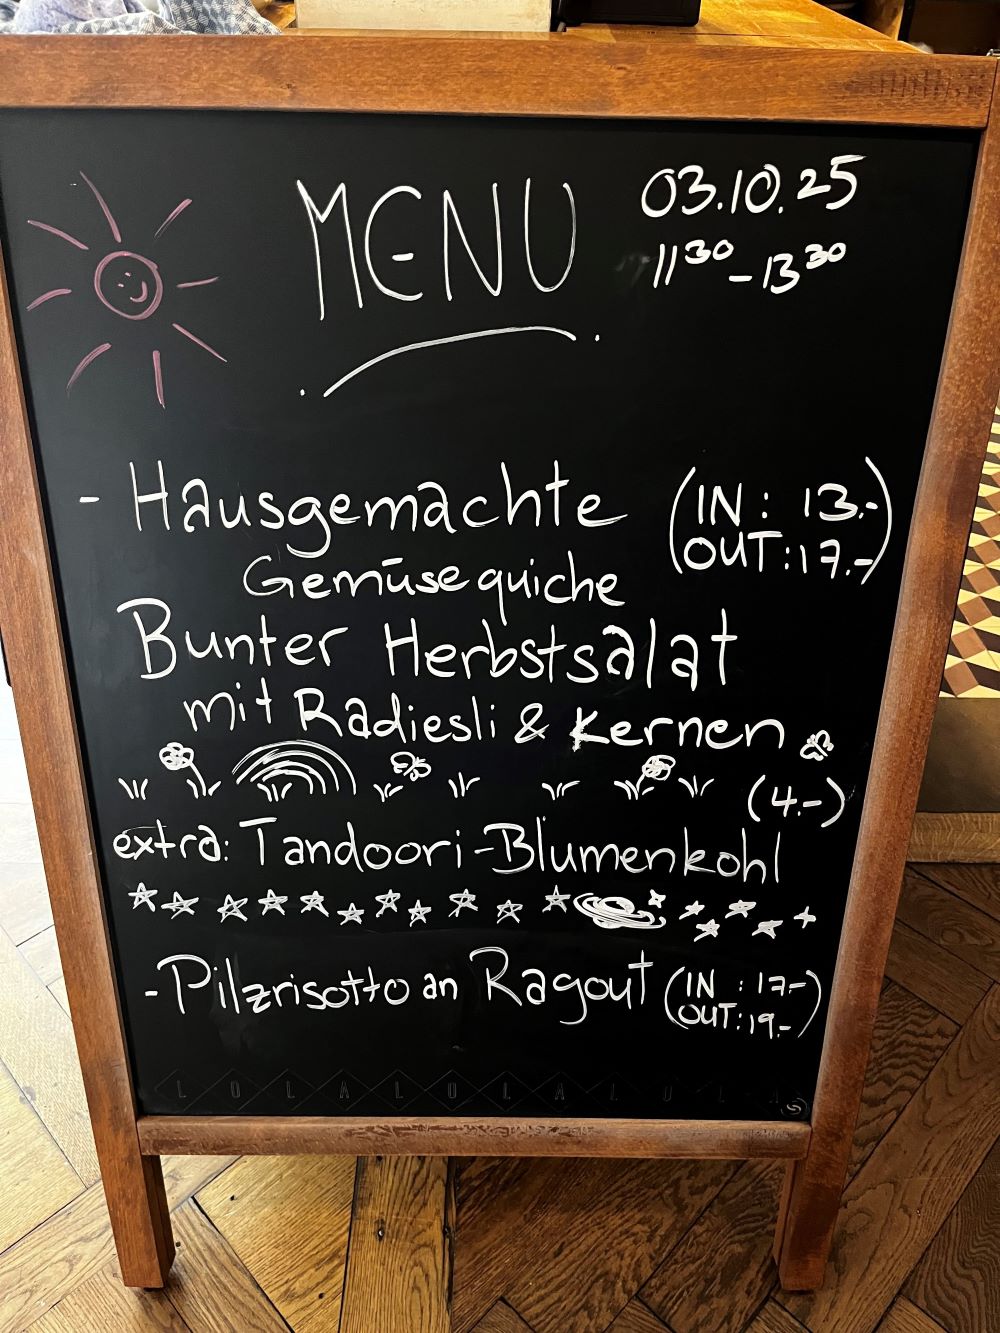 MENU
03.10.25
11³⁰ - 13³⁰
- Hausgemachte
Gemüsequiche
(IN : 13.-
OUT: 17.-)
Bunter Herbstsalat
mit Radiesli & Kernen
(4.-)
extra: Tandoori-Blumenkohl
- Pilzrisotto an Ragout
(IN : 17.-
OUT: 19.-)
LOLALOLALOLA